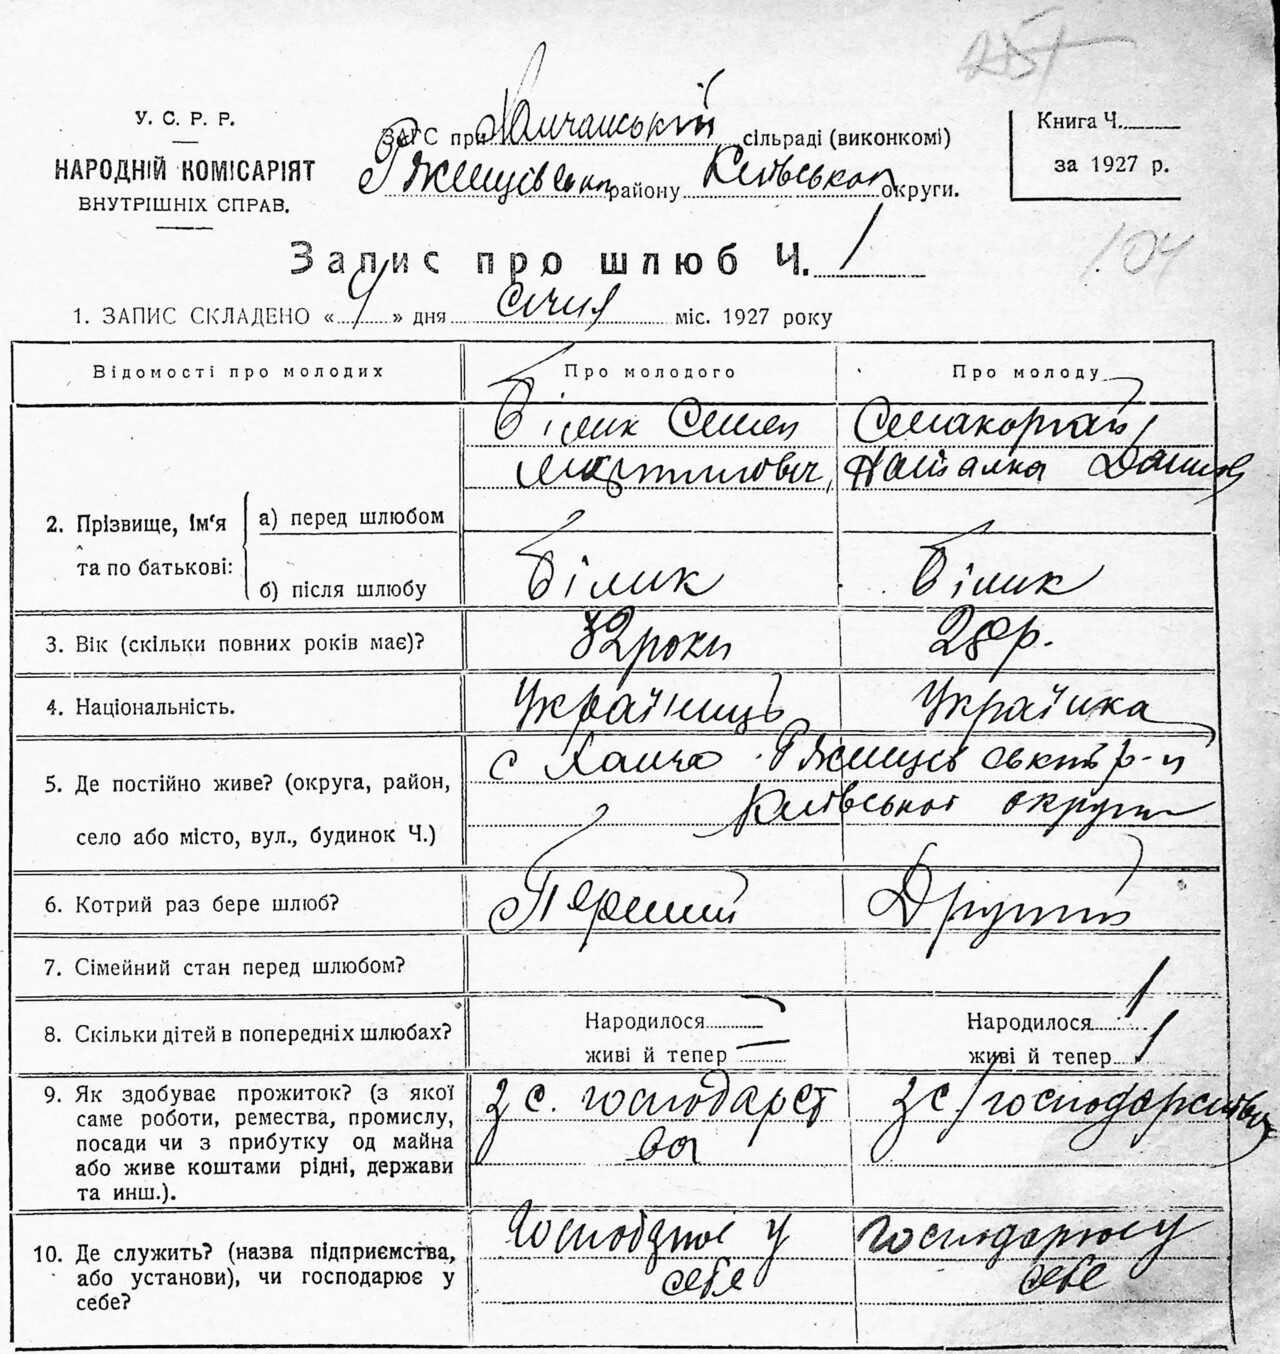 У. С. Р. Р.
НАРОДНІЙ КОМІСАРІЯТ
ВНУТРІШНІХ СПРАВ.
ЗАГС при сільраді (виконкомі)
району Київської округи.
Книга Ч.
за 1927 р.
104
Запис про шлюб Ч. 1
1. ЗАПИС СКЛАДЕНО « 4 » дня січня міс. 1927 року
Відомості про молодих
Про молодого
Про молоду
2. Прізвище, ім'я
та по батькові:
а) перед шлюбом
б) після шлюбу
Білик Семен
Наталка
Білик
Білик
3. Вік (скільки повних років має)?
32 роки
28 р.
4. Національність.
Українець
Українка
5. Де постійно живе? (округа, район,
село або місто, вул., будинок Ч.)
с р-н
Київської округи
6. Котрий раз бере шлюб?
Перший
Другий
7. Сімейний стан перед шлюбом?
8. Скільки дітей в попередніх шлюбах?
Народилося —
живі й тепер —
Народилося 1
живі й тепер 1
9. Як здобуває прожиток? (з якої
саме роботи, ремества, промислу,
посади чи з прибутку од майна
або живе коштами рідні, держави
та инш.).
з с. господарст
ва
з с/господарства
10. Де служить? (назва підприємства,
або установи), чи господарює у
себе?
у
себе
Господарює у
себе